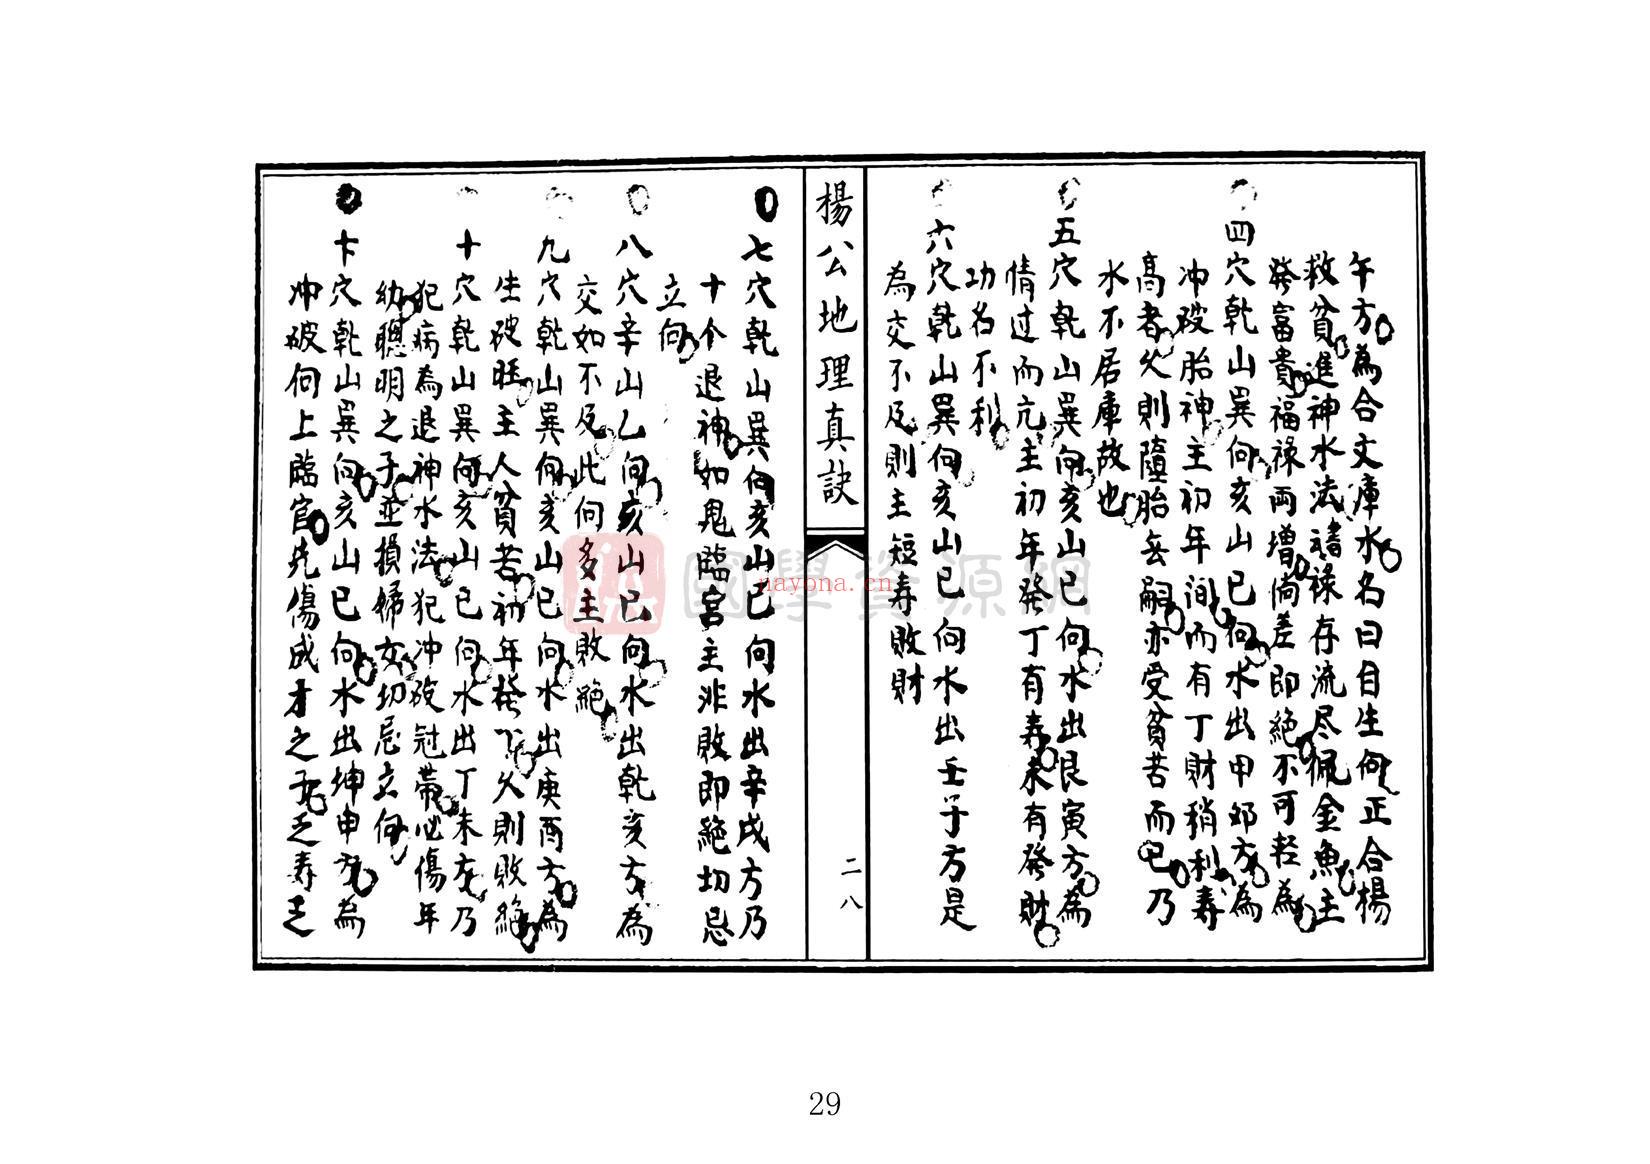 午方為合文庫水名曰自生向正合楊
救貧進神水法禄存流尽佩金魚主
發富貴福禄両增倘差即絶不可轻為
四穴乾山巽向亥山巳向水出甲卯方為
冲破胎神主初年间而有丁財稍利寿
高者久則墮胎無嗣亦受貧苦而已乃
水不居庫故也
五穴乾山巽向亥山巳向水出艮寅方為
情过而亢主初年發丁有寿未有發財
功名不利
六穴乾山巽向亥山巳向水出壬子方是
為交不及則主短寿敗財
楊公地理真訣
二八
七穴乾山巽向亥山巳向水出辛戌方乃
十个退神如鬼臨官主非敗即絶切忌
立向
八穴辛山乙向亥山巳向水出乾亥方為
交如不及此向多主敗絶
九穴乾山巽向亥山巳向水出庚酉方為
生破旺主人貧苦初年發丁久則敗絶
十穴乾山巽向亥山巳向水出丁未方乃
犯病為退神水法犯冲破冠帶必傷年
幼聰明之子並損婦女切忌立向
穴乾山巽向亥山巳向水出坤申方為
冲破向上臨官先傷成才之子乏寿乏
國學資源網
nayona.cn
29